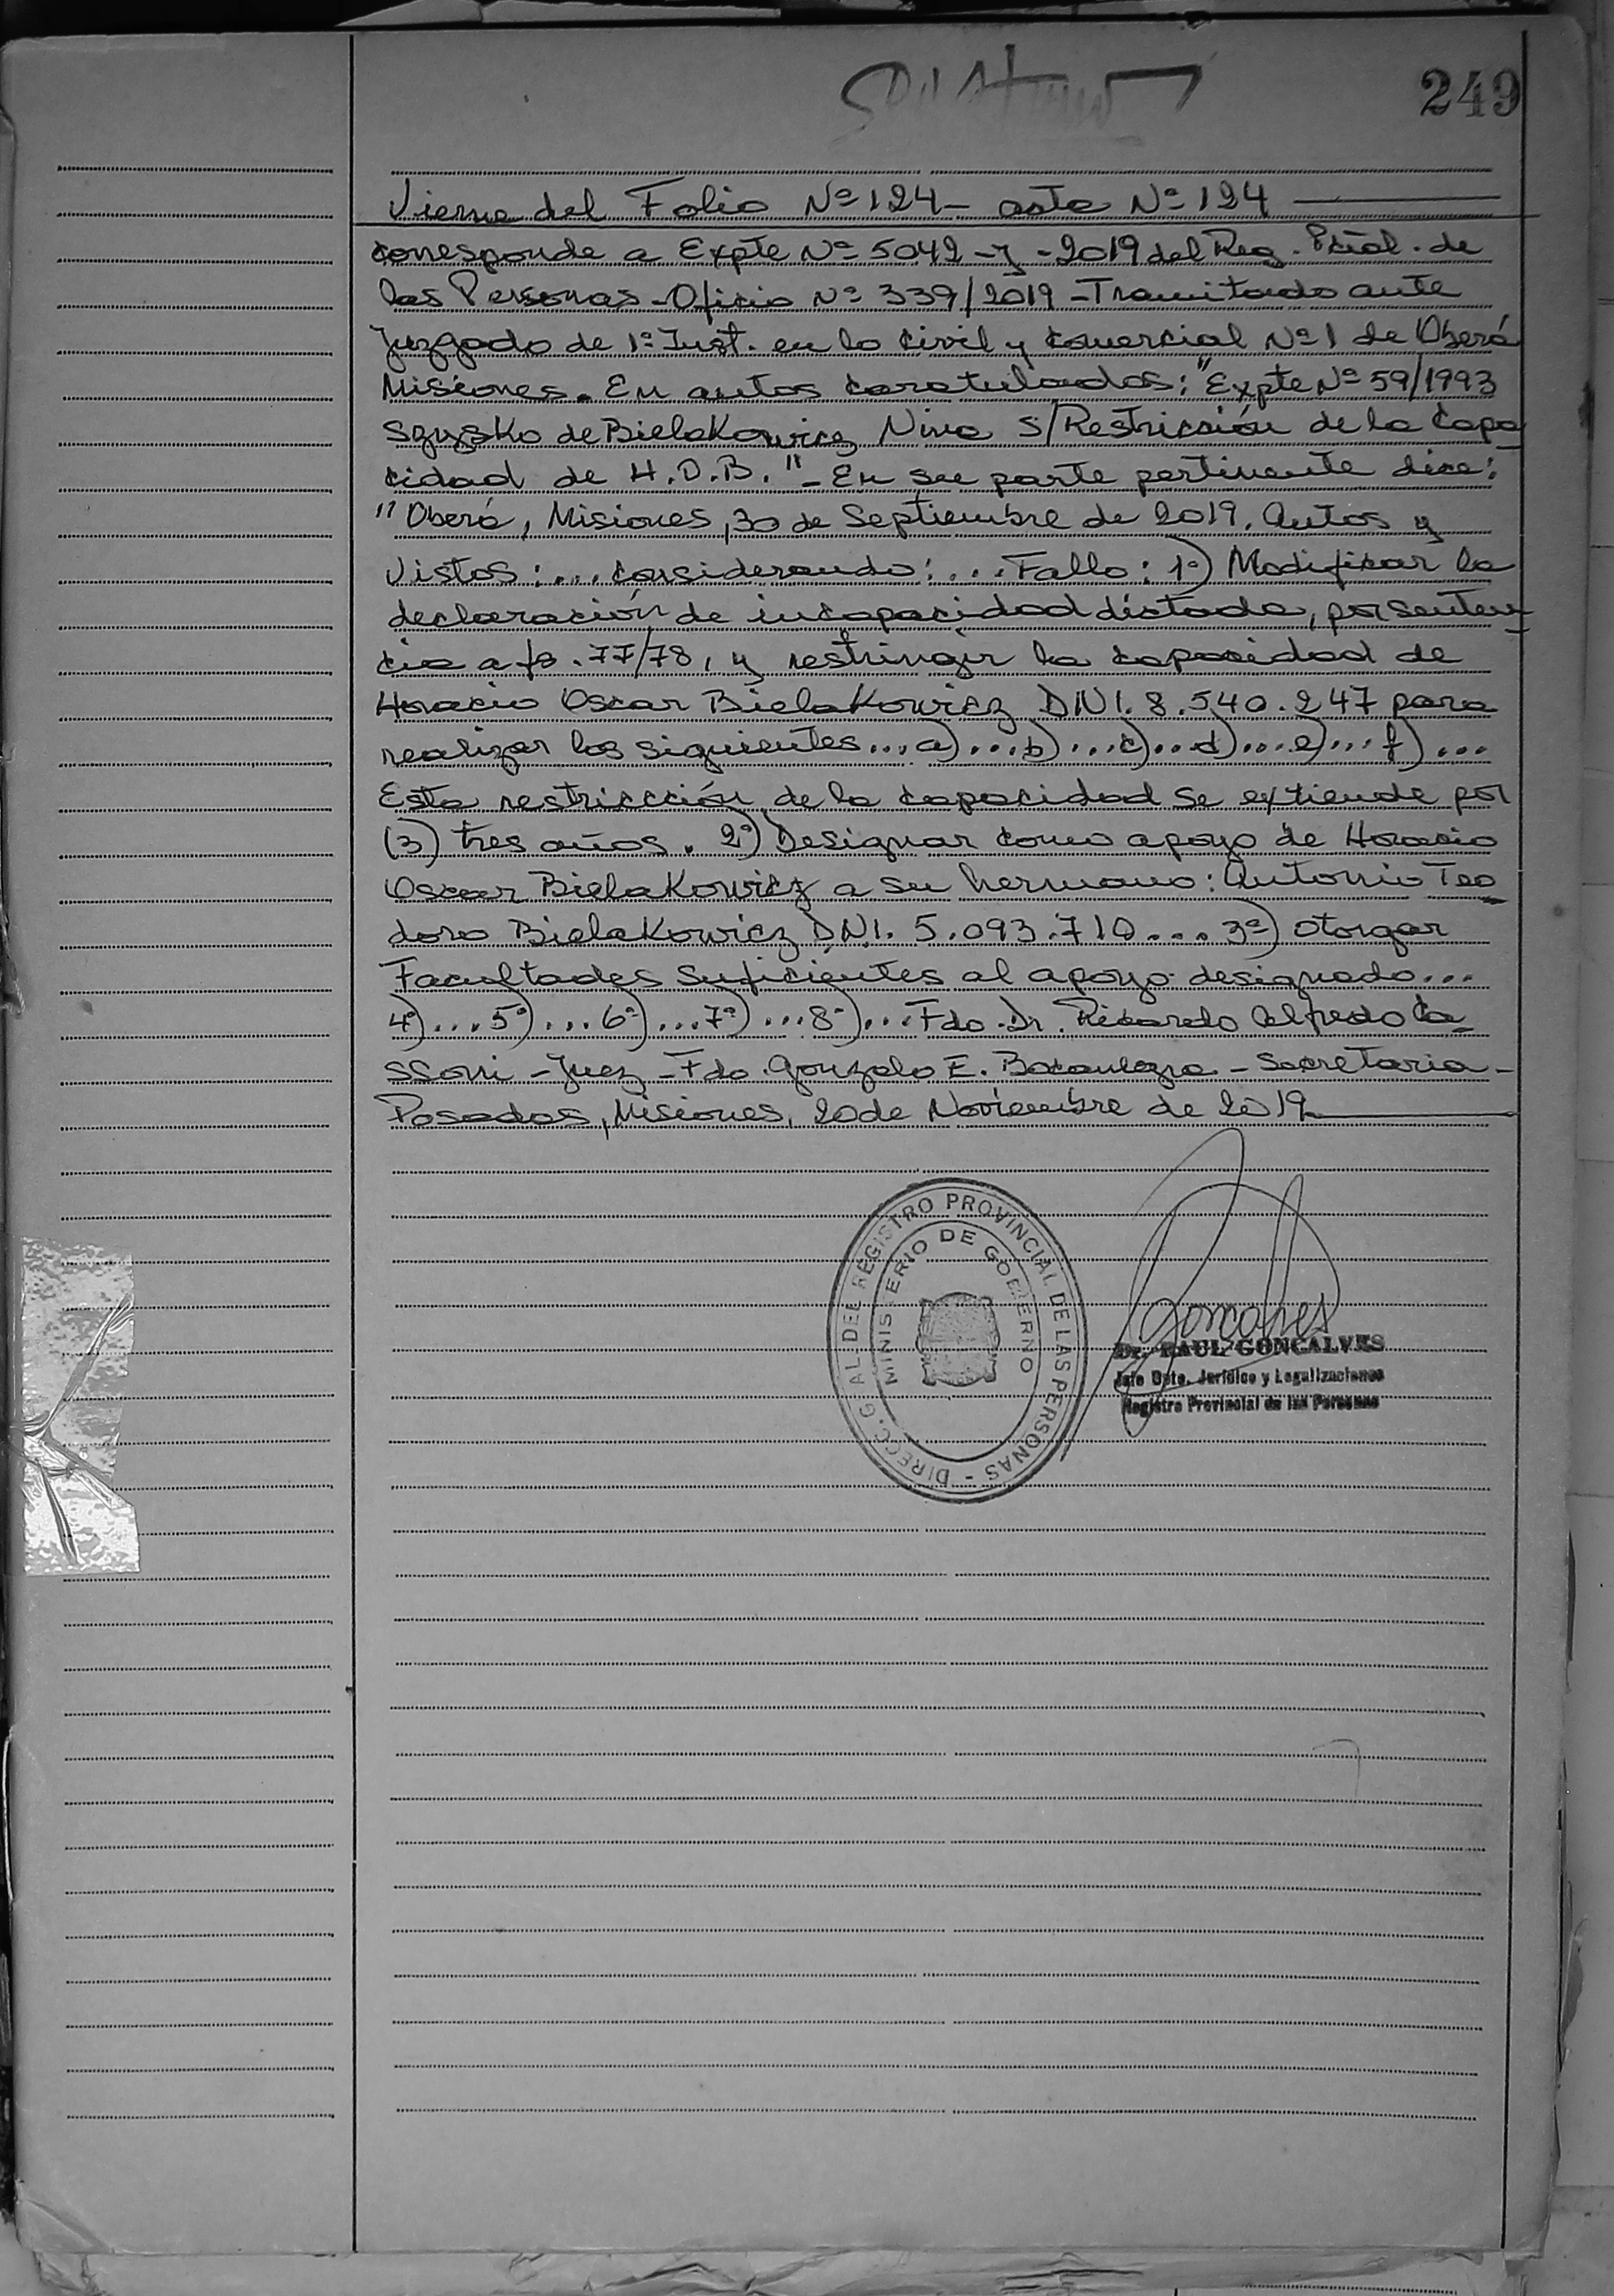 249
Viene del Folio Nº 124 - acta Nº 124
corresponde a Expte Nº 5042 - y - 2019 del Reg. Pcial. de
las Personas - Oficio Nº 339/2019 - Tramitado ante
Juzgado de 1º Inst. en lo Civil y Comercial Nº 1 de Oberá
Misiones. En autos caratulados: "Expte Nº 59/1993
Szyszko de Bielakowicz Nina S/Restricción de la Capa
cidad de H.O.B." - En su parte pertinente dice:
"Oberá, Misiones, 30 de Septiembre de 2019. Autos y
Vistos:... Considerando:... Fallo: 1º) Modificar la
declaración de incapacidad dictada, por senten-
cia a fs. 77/78, y restringir la capacidad de
Horacio Oscar Bielakowicz DNI. 8.540.247 para
realizar los siguientes... a)...b)...c)...d)...e)...f)...
Esta restricción de la capacidad se extiende por
(3) tres años. 2º) Designar como apoyo de Horacio
Oscar Bielakowicz a su hermano: Antonio Teo
doro Bielakowicz DNI. 5.093.710... 3º) Otorgar
Facultades Suficientes al apoyo designado...
4º)...5º)...6º)...7º)...8º)... Fdo. Dr. Ricardo Alfredo Ca-
ssoni - Juez - Fdo. Gonzalo E. - Secretaria -
Posadas, Misiones, 20 de Noviembre de 2019
DIRECC. G AL DEL REGISTRO PROVINCIAL DE LAS PERSONAS -
MINISTERIO DE GOBIERNO
Goncalves
Dr. RAUL GONCALVES
Jefe Dpto. Jurídico y Legalizaciones
Registro Provincial de las Personas